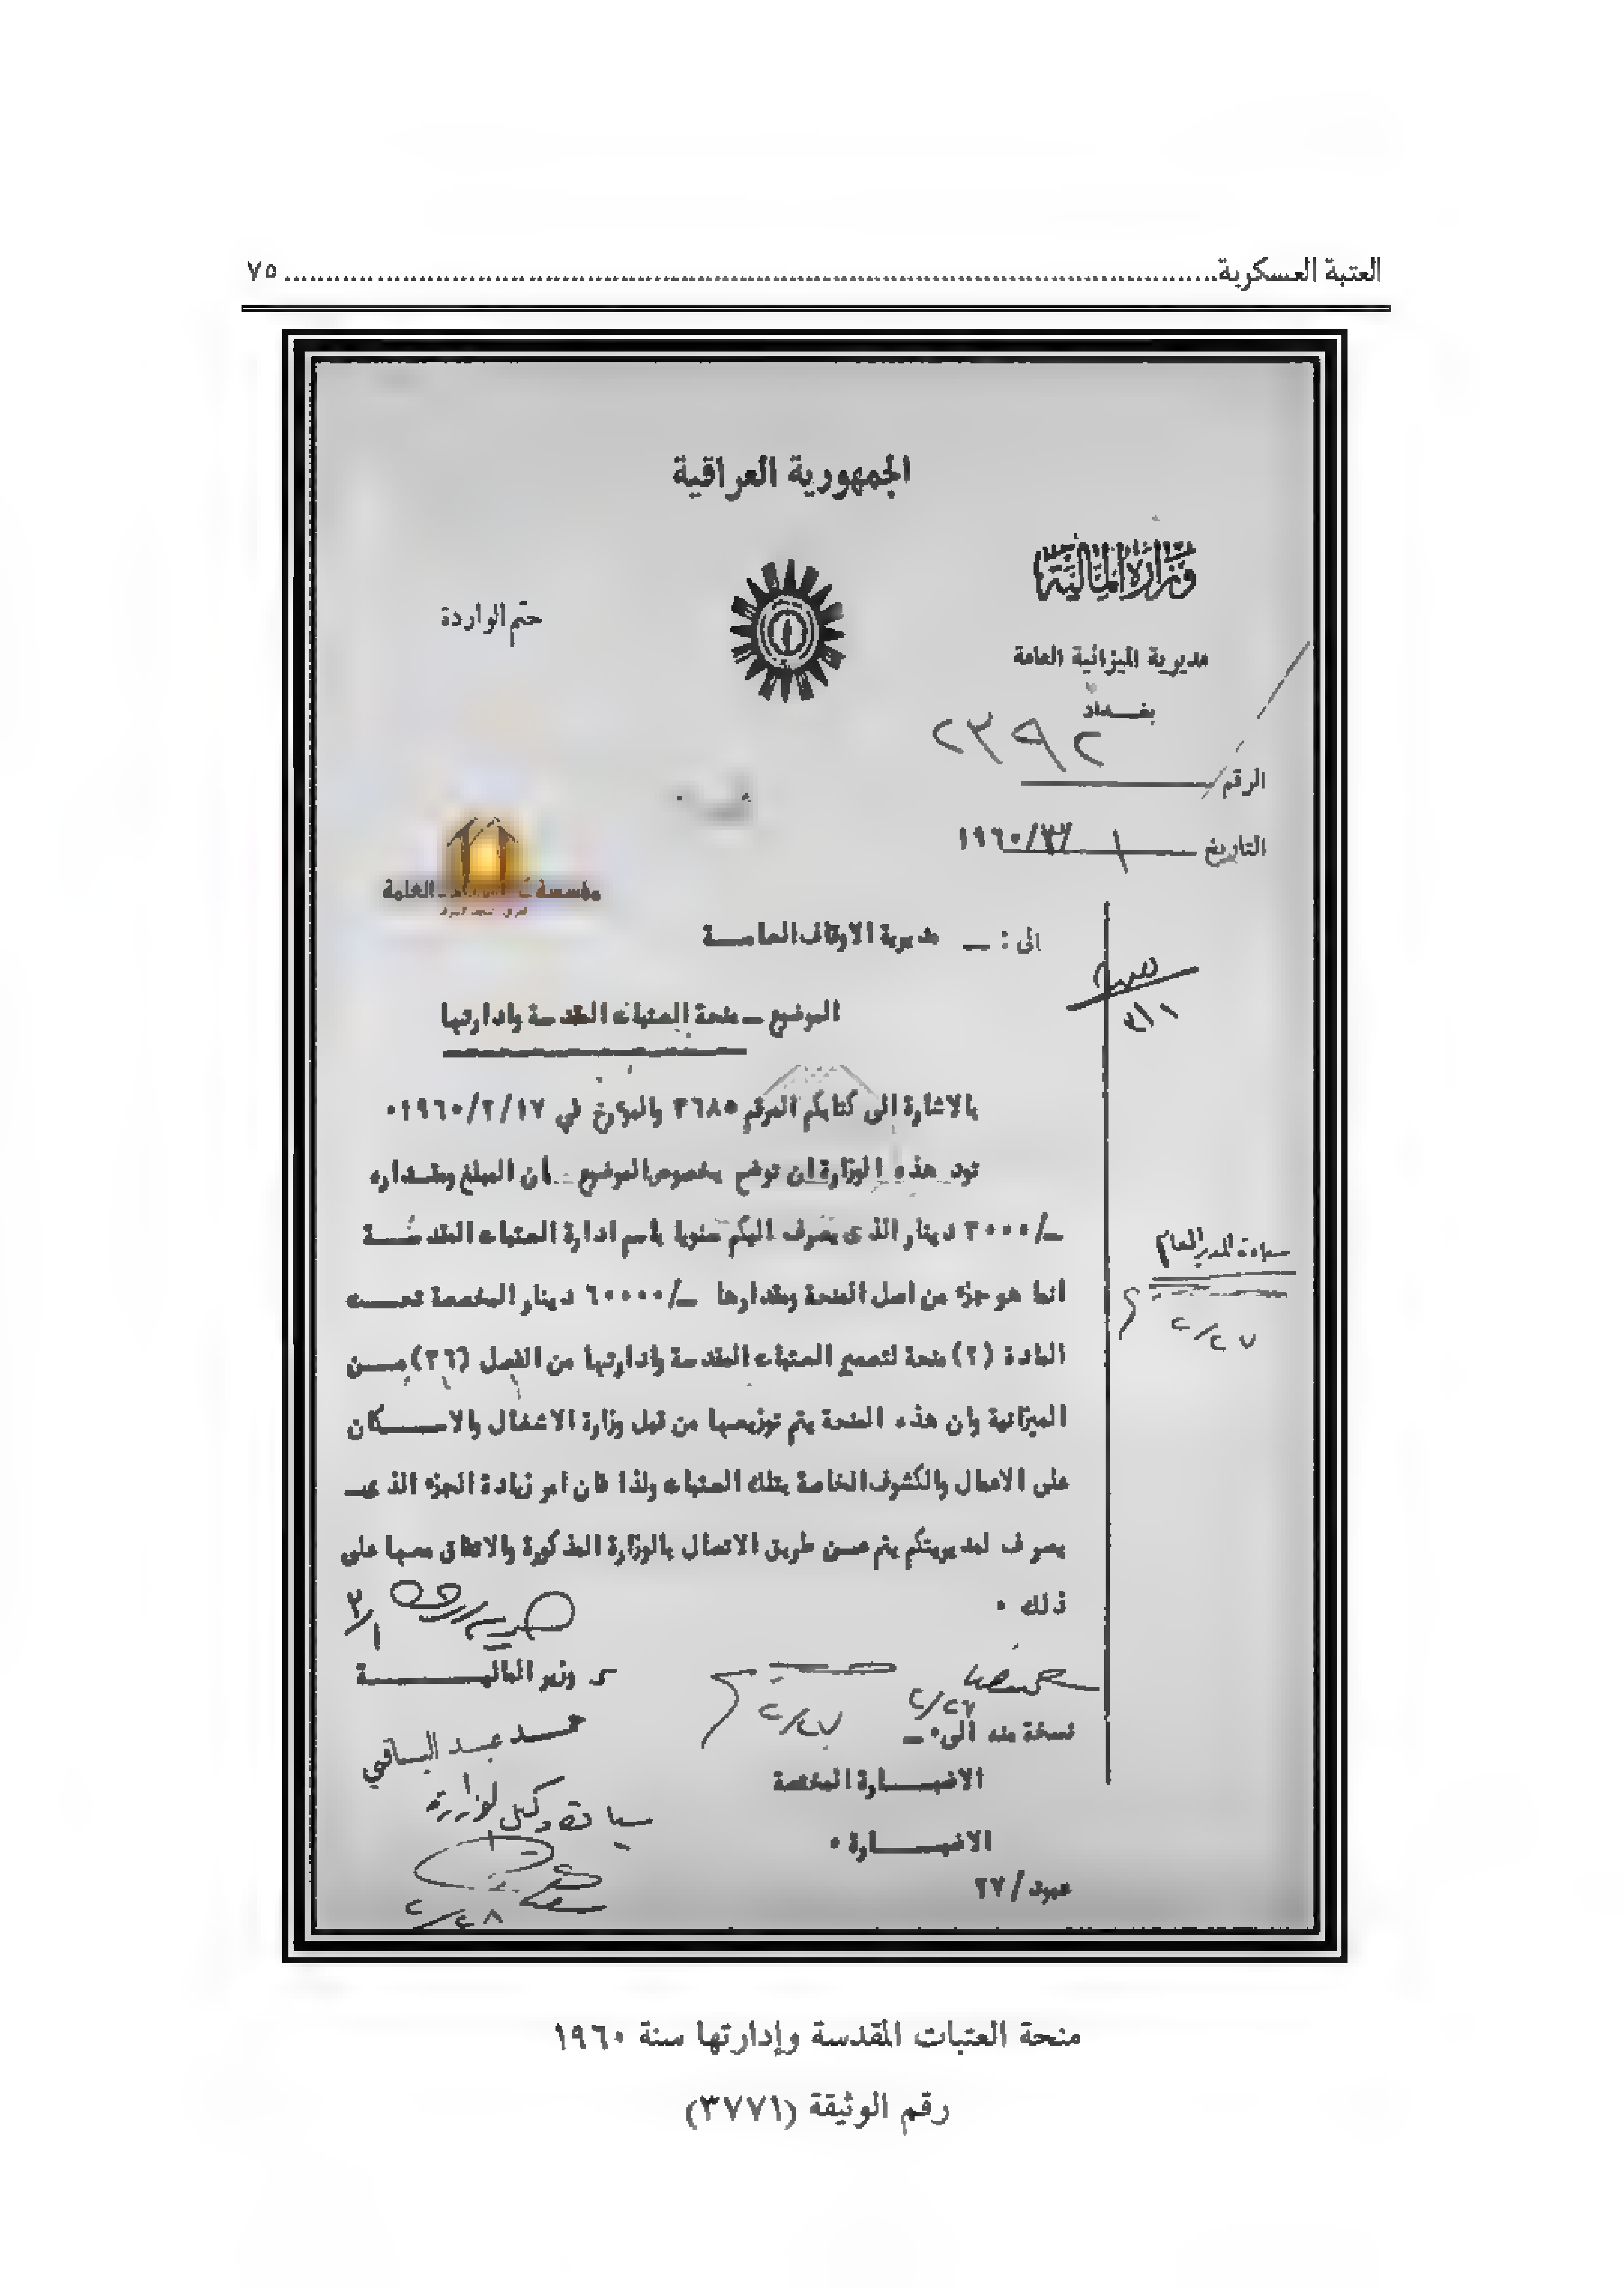 العتبة العسكرية ........ ٧٥
الجمهورية العراقية
وزارة المالية
ختم الواردة
مديرية الميزانية العامة
بغـــداد
الرقم ٢٣٩٢
التاريخ ١ /٣/ ١٩٦٠
الى : ــ مديرية الاوقاف العامـــة
الموضوع ــ منحة العتبات المقدسة وادارتها
بالاشارة الى كتابكم المرقم ٣٦٨٥ والمؤرخ في ١٩٦٠/٢/١٧٠
تود هذه الوزارة ان توضح بخصوص الموضوع ان المبلغ ومقـداره
ــ/٣٠٠٠ دينار الذى يصرف اليكم سنويا باسم ادارة العتبات المقدسـة
انما هو جزء من اصل المنحة ومقدارها ــ/٦٠٠٠٠ دينار المخصصة تحـــت
المادة (٢) منحة لتعمير العتبات المقدسة وادارتها من الفصل (٢٦) مـــن
الميزانية وان هذه المنحة يتم توزيعها من قبل وزارة الاشغال والاســـكان
على الاعمال والكشوف الخاصة بتلك العتبات ولذا فان امر زيادة الجزء الذى
يصرف لمديريتكم يتم عـن طريق الاتصال بالوزارة المذكورة والاتفاق معها على
ذلك ٠
وزير الماليـــــة
نسخة منه الى٠ــ
الاضبـــارة المختصة
الاضبـــارة ٠
سيادة المدير العام
٢/٢٧
٢/٢٦
٢/٢٧
سيادة وكيل الوزارة
٢/٢٨
منحة العتبات المقدسة وإدارتها سنة ١٩٦٠
رقم الوثيقة (٣٧٧١)